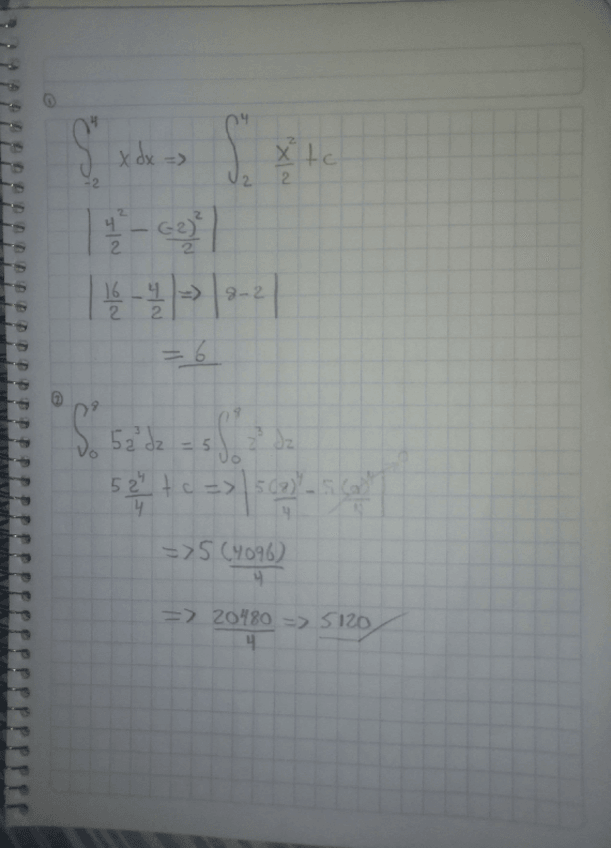 ①
∫₋₂⁴ x dx => ∫₂⁴ x²/2 + c
| 4²/2 - (-2)²/2 |
| 16/2 - 4/2 | => | 8 - 2 |
= 6
②
∫₀⁸ 5z³ dz = 5 ∫₀⁸ z³ dz
5 z⁴/4 + c => | 5(8)⁴/4 - 5(0)⁴/4 |
=> 5 (4096)/4
=> 20480/4 => 5120